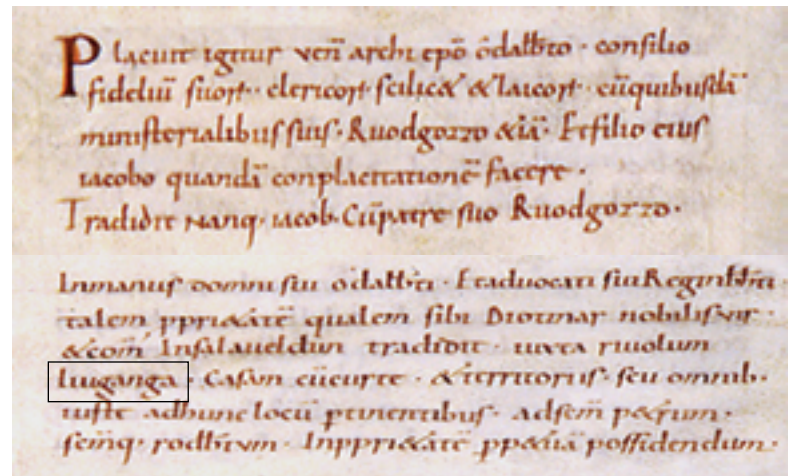 Placuit igitur ven̄ archi ep̄o ōdalb̄to · consilio
fideliū suoꝝ · clericoꝝ · scilic& & laicoꝝ · cū quibusdā
ministerialibus suis · Ruodgozzo &iā · Et filio eius
iacobo quandā conplacitationē facere ·
Tradidit nanq· iacob · Cū patre suo Ruodgozzo ·
In manus domni sui ōdalb̄ti · Et aduocati sui Reginb̄ti ·
talem ꝓpri&atē qualem sibi Diotmar nobilis vir ·
& com̄ In salaueldun tradidit · iuxta riuolum
liuganga · Casam cū curte · & territoriis · seu omnib·
iuste ad hunc locū ꝑtinentibus · ad sc̄m p&rum ·
sc̄mq· rodb̄tum · In ꝓpri&atē ꝑp&uā possidendum ·